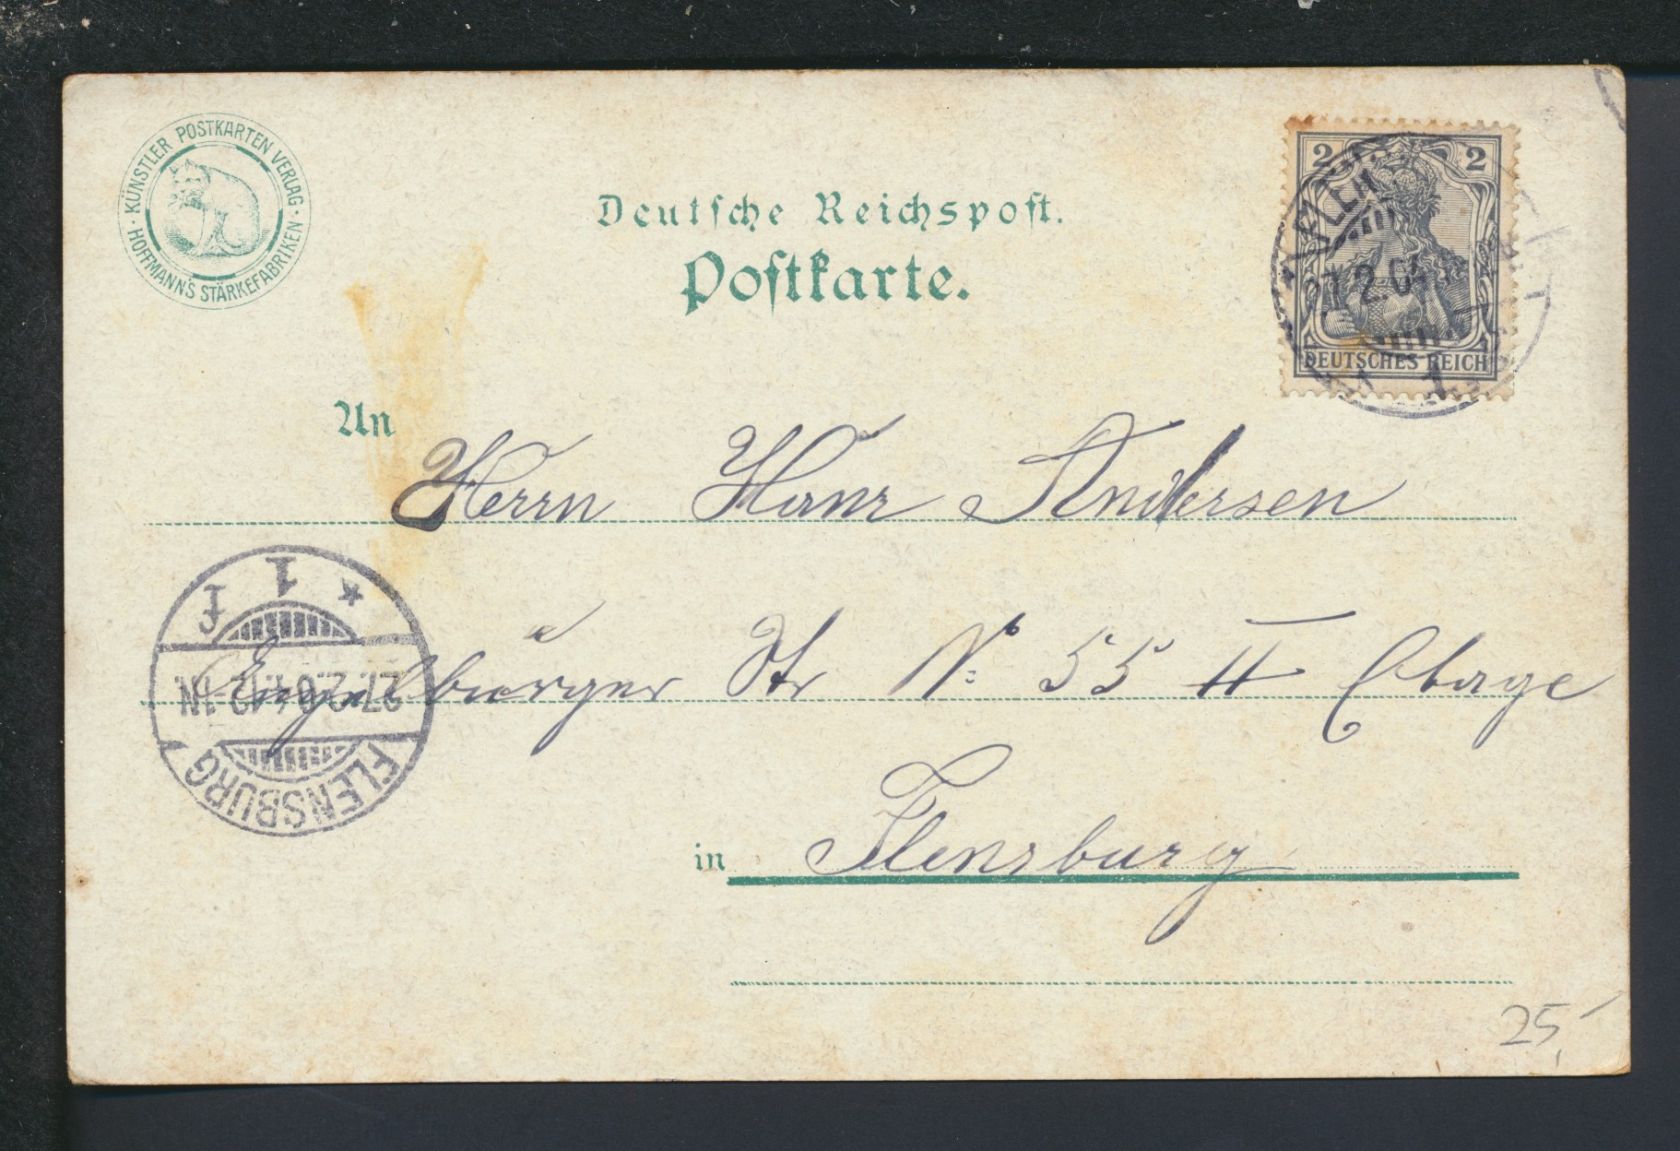 KÜNSTLER POSTKARTEN VERLAG · HOFFMANN'S STÄRKEFABRIKEN ·
Deutsche Reichspost.
Postkarte.
2 2
DEUTSCHES REICH
2.04
1.
An
Herrn Hans Andersen
Engelbürger Str No 55 II Etage
in Flensburg
FLENSBURG
27.2.04.12-1N.
* 1 f
25,